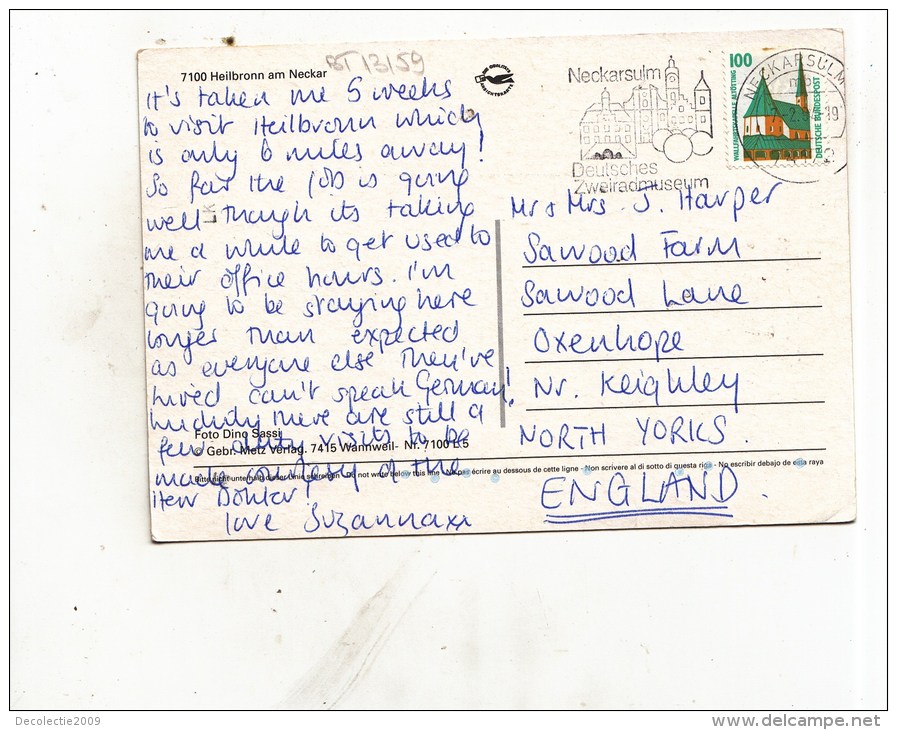 7100 Heilbronn am Neckar
BT 13159
It's taken me 5 weeks
to visit Heilbronn which
is only 6 miles away!
So far the job is going
well though its taking
me a while to get used to
their office hours. I'm
going to be staying here
longer than expected
as everyone else they've
hired can't speak German!
there are still a
few visits to be
made courtesy of the
Herr
love Suzanna xx
Foto Dino Sassi
© Gebr. Metz Verlag. 7415 Wannweil - Nr. 7100 L5
Bitte nicht unterhalb dieser Linie schreiben - Do not write below this line - Ne pas écrire au dessous de cette ligne - Non scrivere al di sotto di questa riga - No escribir debajo de esta raya
Neckarsulm
Deutsches
Zweiradmuseum
100
WALLFAHRTSKAPELLE ALTÖTTING
DEUTSCHE BUNDESPOST
NECKARSULM
Mr & Mrs J. Harper
Sawood Farm
Sawood Lane
Oxenhope
Nr. Keighley
NORTH YORKS.
ENGLAND.
Decolectie2009
www.delcampe.net